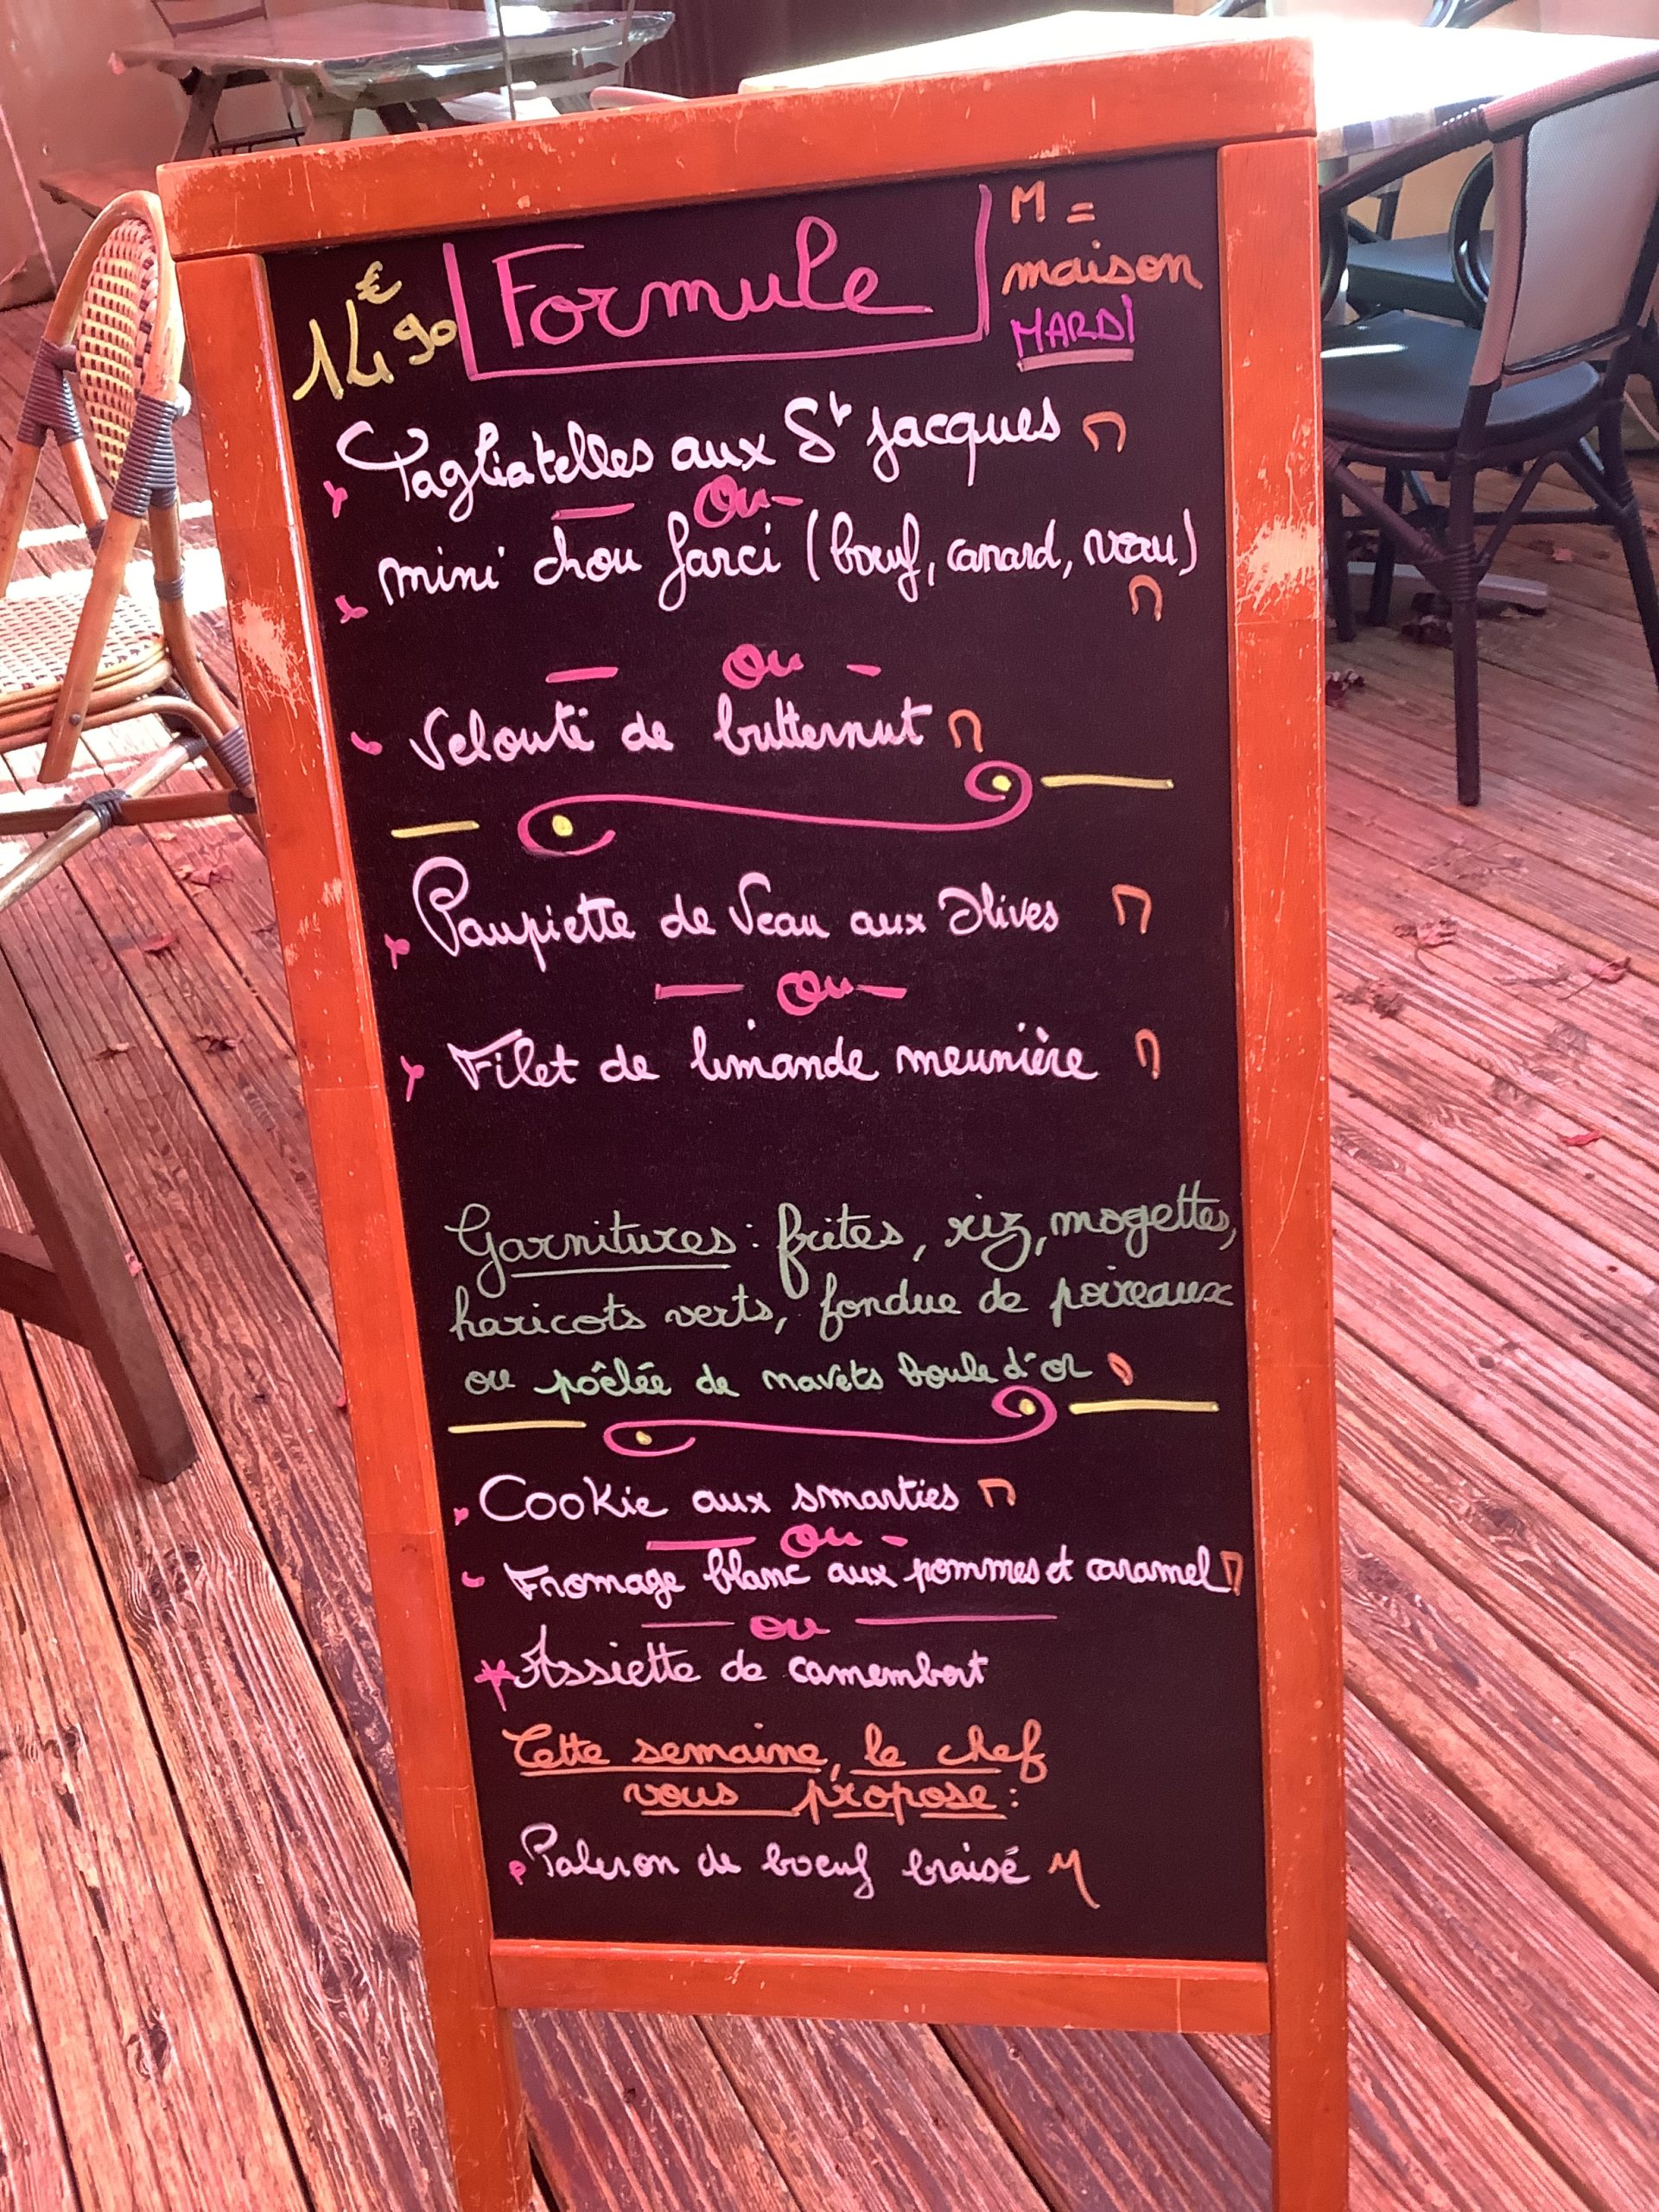 14€90 Formule M =
maison
MARDI
Tagliatelles aux St Jacques M
Ou
mini chou farci (boeuf, canard, veau)
M
Ou
Velouté de butternut M
Paupiette de Veau aux Olives M
Ou
Filet de limande meunière M
Garnitures : frites, riz, mogettes,
haricots verts, fondue de poireaux
ou pôêlée de navets boule d'or
Cookie aux smarties M
Ou
Fromage blanc aux pommes et caramel M
ou
Assiette de camembert
Cette semaine, le chef
vous propose :
Paleron de boeuf braisé M